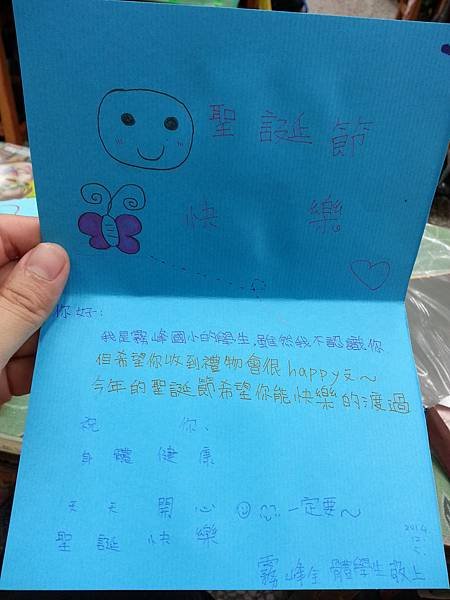 聖誕節
快樂
你好:
我是霧峰國小的學生,雖然我不認識你
但希望你收到禮物會很happy
今年的聖誕節希望你能快樂的渡過
祝 你、
身體健康
天天開心 一定要~
聖誕快樂
2014
12.
霧峰全體學生敬上